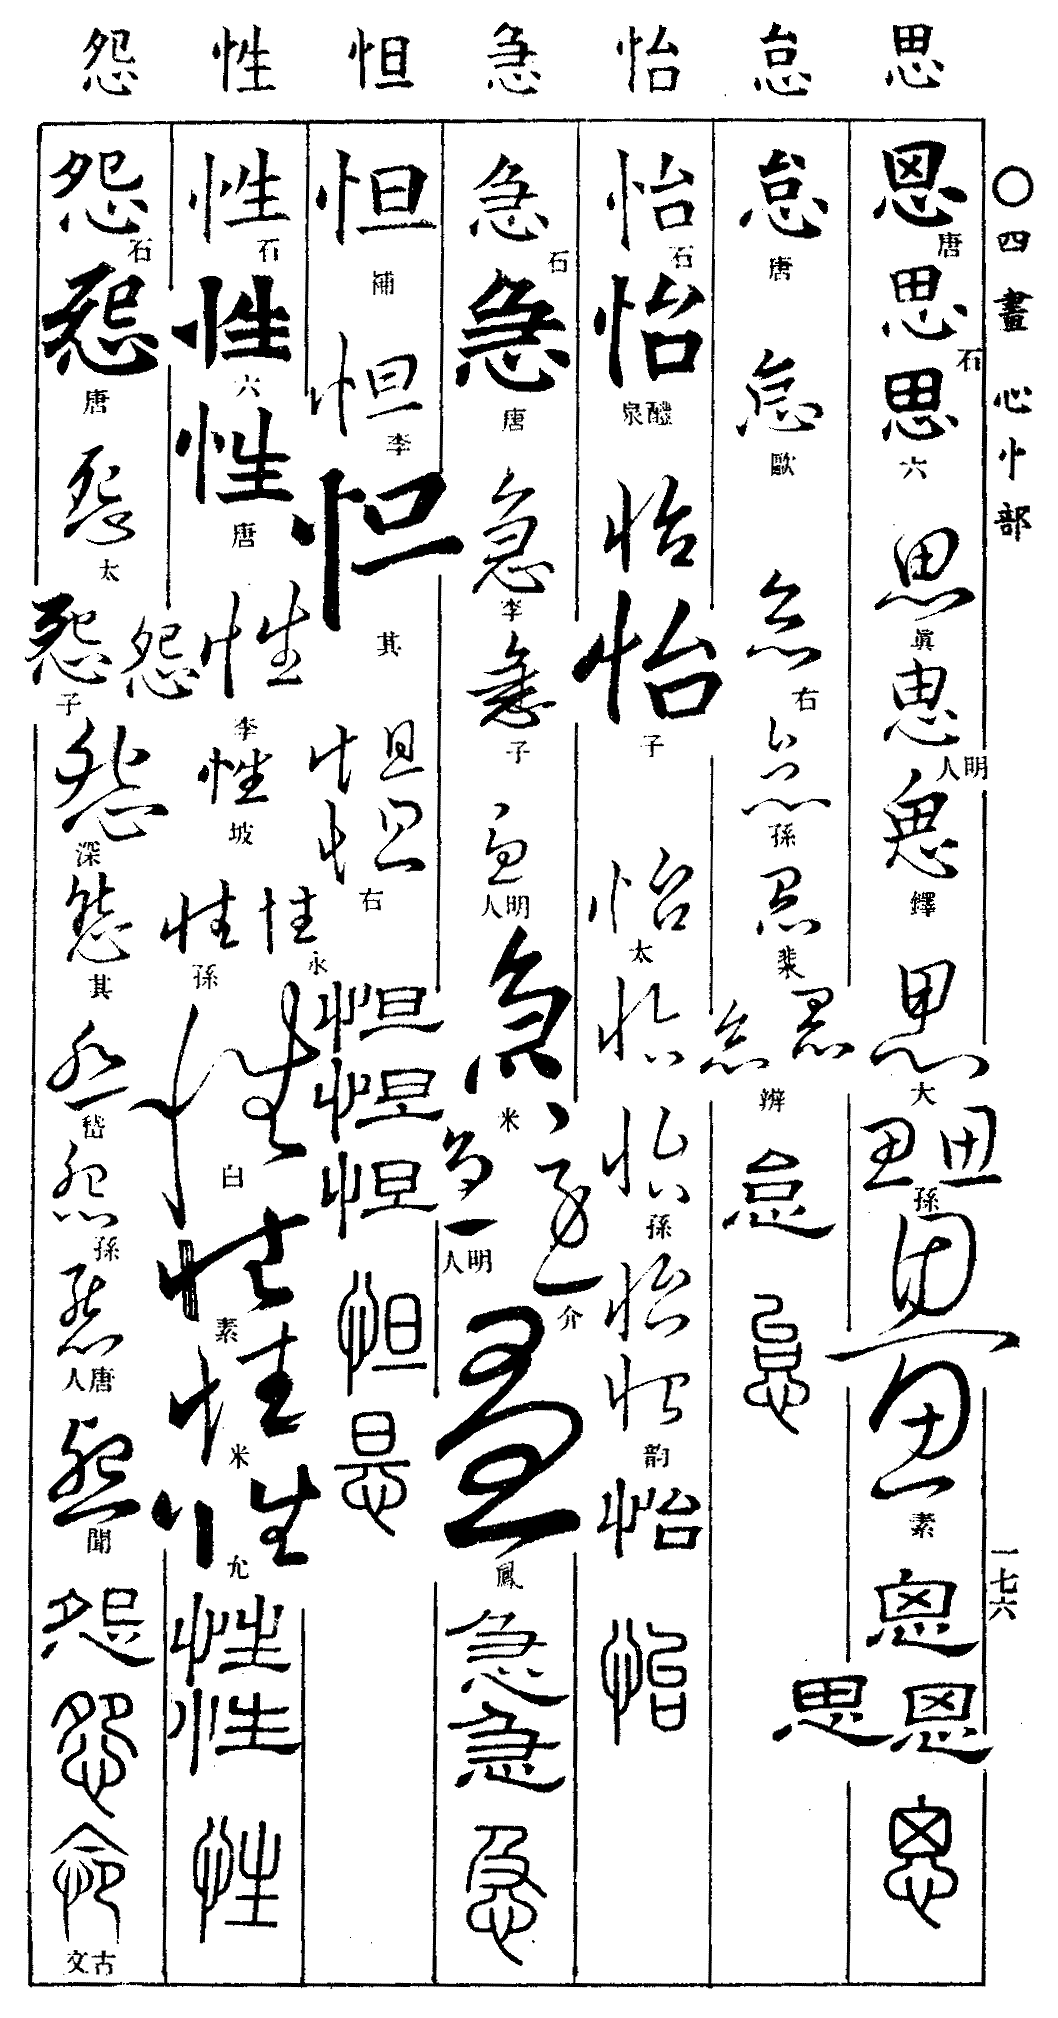 ○四畫 心忄部 一七六
思 怠 怡 急 怛 性 怨
思 唐
思 石
思 六
思 眞
思 明人
思 鐸
思 大
思 思 孫
思
思 素
思
思 思
思
怠 唐
怠 歐
怠 右
怠 孫
怠 裴
怠 怠 辨
怠
怠
怡 石
怡 醴泉
怡
怡 子
怡 太
怡
怡 孫
怡
怡 韵
怡
怡
急 石
急 唐
急 李
急 子
急 明人
急 米
急 介
急 明人
急 鳳
急
急
急
怛 補
怛 李
怛 其
怛
怛 右
怛
怛
怛
怛
怛
性 石
性 六
性 唐
性 李
性 坡
性 永
性 孫
性 白
性 素
性 米
性 允
性
性
性
怨 石
怨 唐
怨 太
怨 怨 子
怨 深
怨 其
怨 嵇
怨 孫
怨 唐人
怨 聞
怨
怨
怨 古文